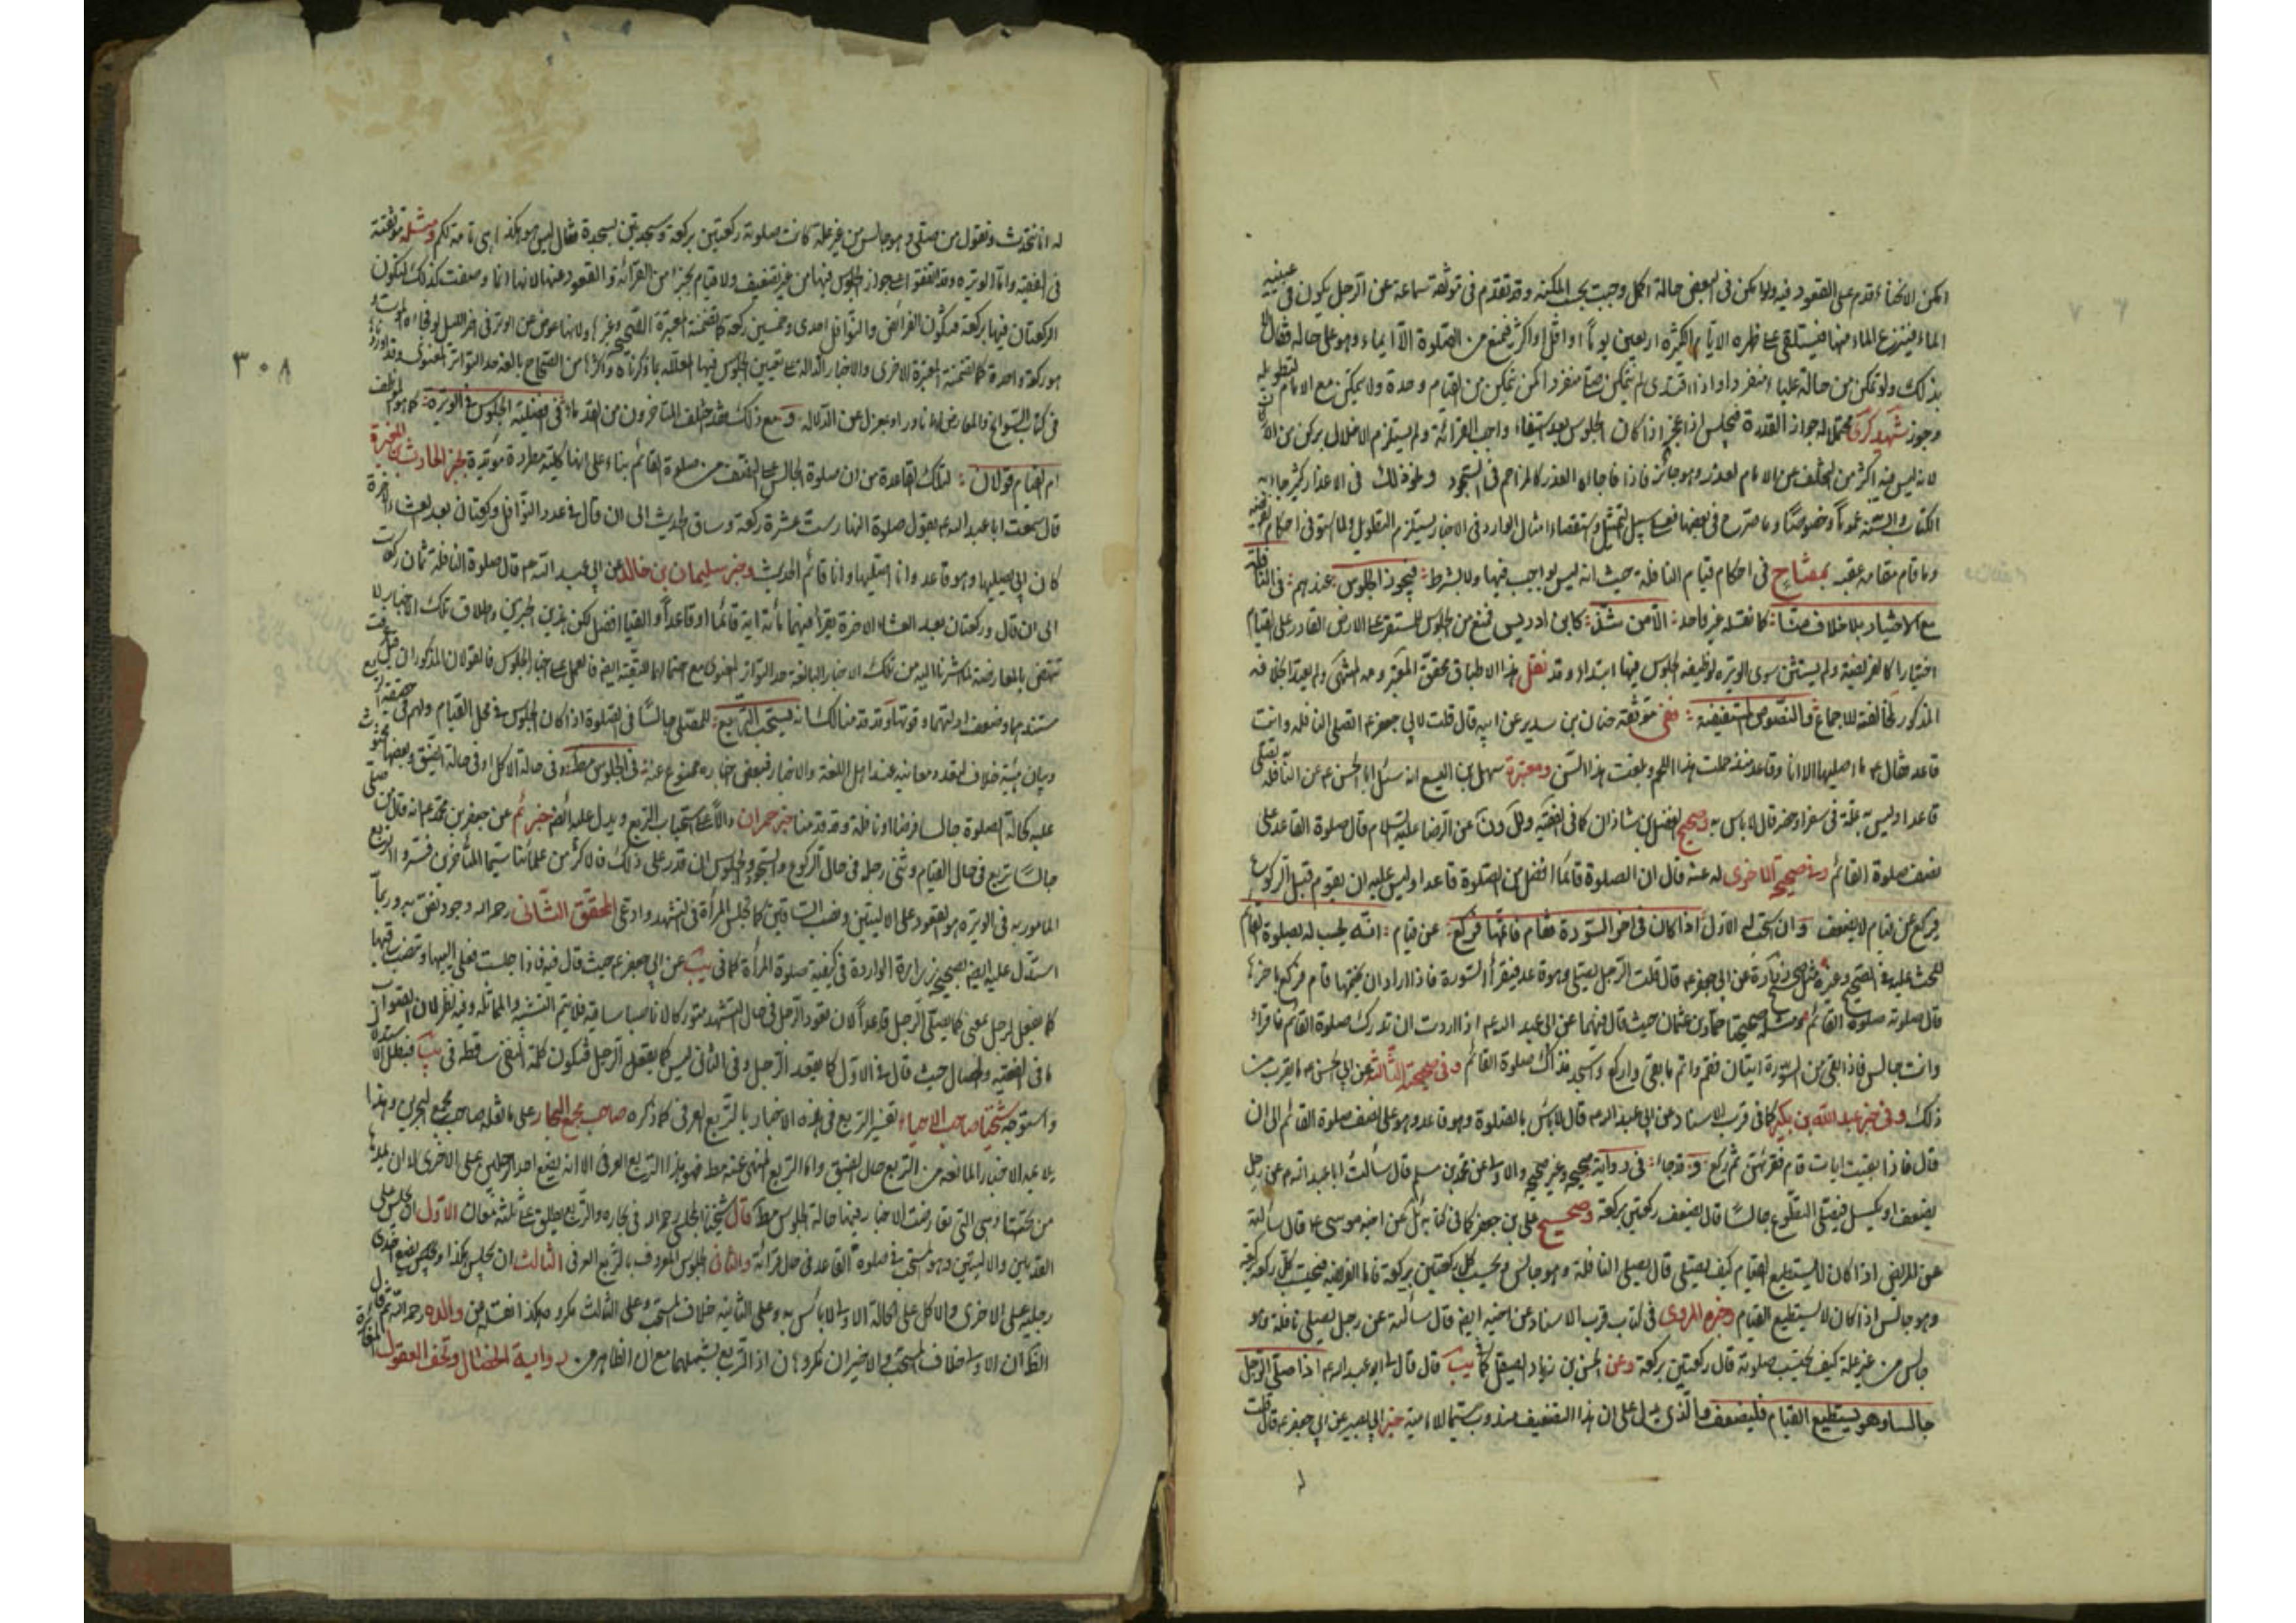 امكن الانحناء قدم على القعود فيه ولو امكن في البعض حالة اكمل وجبت بحسب المكنة وقد تقدم في موثقة سماعة عن الرجل يكون في عينيه
الماء فينتزع الماء منها فيستلقي على ظهره الايام الكثيرة اربعين يوما او اقل او اكثر فيمتنع من الصلوة الا ايماء وهو على حاله فقال لا باس
بذلك ولو تمكن من حالة عليا منفردا واذا اقتدى لم يتمكن منها منفردا كمن تمكن من القيام وحده ولا يمكن مع الامام لتطويله
وجوز شهيد كرى جواز القدوة فيجلس اذا عجز اذا كان الجلوس بعد استيفاء واجب القرائة ولم يستلزم الاخلال بركن من الاركان
لانه ليس فيه اكثر من التخلف عن الامام لعذر وهو جائز فاذا فاجاه العذر كالمزاحم في السجود ونحو ذلك في الاعذار كثير جاء به
الكتاب والسنة عموما وخصوصا وما صرح في بعضها فعلى سبيل التمثيل واستقصاء امثال الوارد في الاخبار يستلزم التطويل ولما استوفى احكام الفريضة
وما قام مقامه عقبه بمفتاح في احكام قيام النافلة حيث انه ليس بواجب فيها ولا بشرط فيجوز الجلوس عندهم في النافلة
مع الاختيار بلا خلاف منا كما نقله غير واحد الا من شذ كابن ادريس فمنع من الجلوس للمستقر على الارض القادر على القيام
اختيارا كالفريضة ولم يستثن سوى الوتيرة لوظيفة الجلوس فيها ابتداء وقد نقل هذا الاطباق محقق المعتبر وعد المنتهى ولم يعتد بخلافه
المذكور لمخالفته للاجماع والنصوص المستفيضة ففي موثقة حنان بن سدير عن ابيه قال قلت لابي جعفر ع اتصلي النافلة وانت
قاعد فقال ع ما اصليها الا وانا قاعد منذ حملت هذا اللحم وبلغت هذا السن ومعتبرة سهل بن اليسع انه سئل ابا الحسن ع عن النافلة يصلي
قاعدا وليس به علة في سفر او حضر قال لا باس به وصحيح الفضل بن شاذان كما في الفقيه عن الرضا عليه السلام قال صلوة القاعد على
نصف صلوة القائم وفي صحيحة الاخرى له عنه قال ان الصلوة قائما افضل من الصلوة قاعدا وليس عليه ان يقوم قبل الركوع
فيركع عن قيام لا يضعف وان استحب له الاول اذا كان في اخر السورة فقام قائما فركع عن قيام انه يحسب له بصلوة القائم
للحث عليه في الصحيح وغيره مثل صحيح زرارة عن ابي جعفر ع قال قلت الرجل يصلي وهو قاعد فيقرأ السورة فاذا اراد ان يختمها قام فركع باخرها
قال صلوته صلوة القائم ومثله صحيحتا حماد بن عثمان حيث قال فيهما عن ابي عبد الله ع اذا اردت ان تدرك صلوة القائم فاقراء
وانت جالس فاذا بقي من السورة ايتان فقم واتم ما بقي واركع واسجد فذاك صلوة القائم وفي صحيحته الثالثة عن ابي الحسن ع ما يقرب من
ذلك وفي خبر عبد الله بن بكير كما في قرب الاسناد عن ابي عبد الله ع قال لا باس بالصلوة وهو قاعد وهو على نصف صلوة القائم الى ان
قال فاذا بقيت ايات قام فقرئهن ثم ركع وقد جاء في رواية صحيح وغير صحيح والاولى عن محمد بن مسلم قال سألت ابا عبد الله ع عن رجل
يضعف او يكسل فيصلي التطوع جالسا قال يضعف ركعتين بركعة وصحيح علي بن جعفر كما في كتابه ئل عن اخيه موسى ع قال سألته
عن المريض اذا كان لا يستطيع القيام كيف يصلي قال يصلي النافلة وهو جالس ويحسب كل ركعتين بركعة فاما الفريضة فيحسب كل ركعة بركعة
وهو جالس اذا كان لا يستطيع القيام وخبره المروي في كتاب قرب الاسناد عن اخيه ايضا قال سألته عن رجل يصلي نافلة وهو
جالس من غير علة كيف يحتسب صلوته قال ركعتين بركعة وعن الحسن بن زياد الصيقل كما في يب قال قال لي ابو عبد الله ع اذا صلى الرجل
جالسا وهو يستطيع القيام فليضعف والذي يدل على ان هذا التضعيف مندوب سيما لامية خبر ابي بصير عن ابي جعفر ع قال قلت
له انا نتحدث ونقول من صلى وهو جالس من غير علة كانت صلوته ركعتين بركعة وسجدتين بسجدة فقال ليس هو هكذا هي تامة لكم ومثله موثقته
في الفقيه واما الوتيرة وقد اتفقوا على جواز الجلوس فيها من غير تضعيف ولا قيام بجزء من القرائة والقعود عنها لانها انما وصفت كذلك لتكون
الركعتان فيها بركعة فتكون الفرائض والنوافل احدى وخمسين ركعة كما تضمنته المعتبرة الصحيح وغيرها ولانها عوض عن الوتر في اخر الليل لو فاجاه الموت
هو ركعة واحدة كما تضمنته المعتبرة الاخرى والاخبار الدالة على تعيين الجلوس فيها المعللة بما ذكرناه واكثرها من الصحاح بالغة حد التواتر المعنوى وقد اوردناها
في كتاب السوانح والمعارض لها نادر او بمعزل عن الدلالة ومع ذلك فقد اختلف المتاخرون من القدماء في افضلية الجلوس في الوتيرة كما هو الموظف
ام القيام قولان لتلك القاعدة من ان صلوة الجالس على النصف من صلوة القائم بناء على انها كلية مطردة مؤيدة لخبر الحارث بن المغيرة
قال سمعت ابا عبد الله ع يقول صلوة النهار ست عشرة ركعة وساق الحديث الى ان قال في عدد النوافل وركعتان بعد العشاء الاخرة
كان ابي يصليها وهو قاعد وانا اصليها وانا قائم الحديث وخبر سليمان بن خالد عن ابي عبد الله ع قال صلوة النافلة ثمان ركعات
الى ان قال وركعتان بعد العشاء الاخرة يقرأ فيهما مائة اية قائما او قاعدا والقيام افضل لكن هذين الخبرين واطلاق تلك الاخبار لا
تنتهض بالمعارضة لما اشرنا اليه من تلك الاخبار البالغة حد التواتر المعنوى مع احتمالها التقية ايضا فالعمل على اخبار الجلوس فالقولان المذكوران قد عرفت
مستندهما وضعف ادلتهما وقوتها وقد قدمنا لك انه يستحب التربيع للمصلي جالسا في الصلوة اذا كان الجلوس في محل القيام ولهم في حقيقة التربيع
وبيان هيئته خلاف لتعدد معانيه عند اهل اللغة والاخبار فبعض اخباره ممنوع عنه في الجلوس مط وفي حالة الاكل او في حالة الضيق وبعضها محثوث
عليه كحالة الصلوة جالسا فرضا او نافلة وقد قدمنا خبر حمران دالا على استحباب التربع ويدل عليه ايضا خبر ئم عن جعفر بن محمد ع انه قال من صلى
جالسا تربع في حال القيام وثنى رجله في حال الركوع والسجود والجلوس ان قدر على ذلك فالاكثر من علمائنا سيما المتاخرين فسروا التربع
المامور به في الوتيرة هو القعود على الاليتين ونصب الساقين كما تجلس المرأة في التشهد وادعى المحقق الثاني رحمه الله وجود نص به وربما
استدل عليه ايضا بصحيح زرارة الواردة في كيفية صلوة المرأة كما في يب عن ابي جعفر ع حيث قال فيه فاذا جلست فعلى اليتيها وتنصب ساقيها
كما يفعل الرجل بمعنى كما يصلي الرجل قاعدا لان قعود الرجل في حال التشهد متوركا لا ناصبا ساقيه فلا يتم التشبيه والمماثلة وفيه نظر لان الصواب
ما في الفقيه والخصال حيث قال في الاول كما يقعد الرجل وفي الثاني ليس كما يقعد الرجل فتكون كلمة النفي ساقطة في يب فبطل الاستدلال
واستوجه شيخنا صاحب الاحياء تفسير التربع في هذه الاخبار بالتربع العرفي كما ذكره صاحب مجمع البحار على ما نقله صاحب مجمع البحرين وهذا
يلاعبه الاخبار المانعة من التربع حال الضيق واما التربع المنهي عنه مط فهو هذا التربع العرفي الا انه يضع احد الرجلين على الاخرى لا ان يمدها
من تحتها وهي التي تعارضت الاخبار فيها حالة الجلوس مط قال شيخنا المجلسي رحمه الله في بحاره والتربع يطلق على ثلثة معان الاول ان يجلس على
القدمين والاليتين وهو المستحب في صلوة القاعد في حال قرائته والثاني الجلوس المعروف بالتربع العرفي الثالث ان يجلس هكذا ويضع احدى
رجليه على الاخرى والاكل على الحالة الاولى لا باس به وعلى الثانية خلاف المستحب وعلى الثالث مكروه هكذا نقله عن والده رحمه الله ثم قال
الظ ان الاولى خلاف المستحب والاخيران مكروهان اذ التربع يشملهما مع ان الظاهر من رواية الخصال وتحف العقول المغايرة
٣٠٨